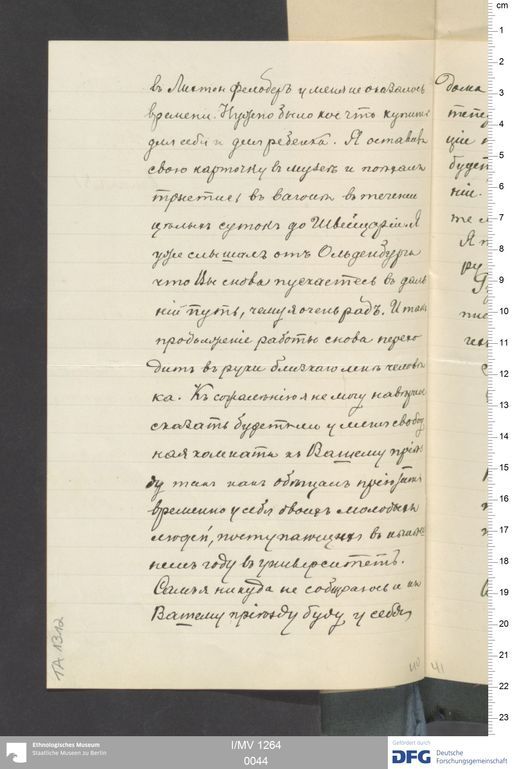 времени. Нужно было кое что купить
для себя и для ребенка. Я оставилъ
свою карточку въ музеѣ и поѣхалъ
въ вагонѣ въ теченіи
цѣлыхъ сутокъ до Швейцаріи. Я
уже слышалъ отъ Ольденбурга
что Вы снова пускаетесь въ даль
ній путь, чему я очень радъ. И такъ
продолженіе работы снова перехо
дитъ въ руки близкаго мнѣ человѣ
ка. Къ сожалѣнію я не могу навѣрное
сказать будетъ ли у меня свобод
ная комната къ Вашему пріѣз
ду такъ какъ обѣщалъ пріютить
временно у себя двоихъ молодыхъ
людей, поступающихъ въ нынѣш
немъ году въ университетъ.
Самъ я никуда не собираюсь и къ
Вашему пріѣзду буду у себя
дома
тепе
будет
ній.
TA 1312
40
41
cm
1
2
3
4
5
6
7
8
9
10
11
12
13
14
15
16
17
18
19
20
21
22
23
Ethnologisches Museum
Staatliche Museen zu Berlin
I/MV 1264
0044
Gefördert durch
DFG Deutsche
Forschungsgemeinschaft